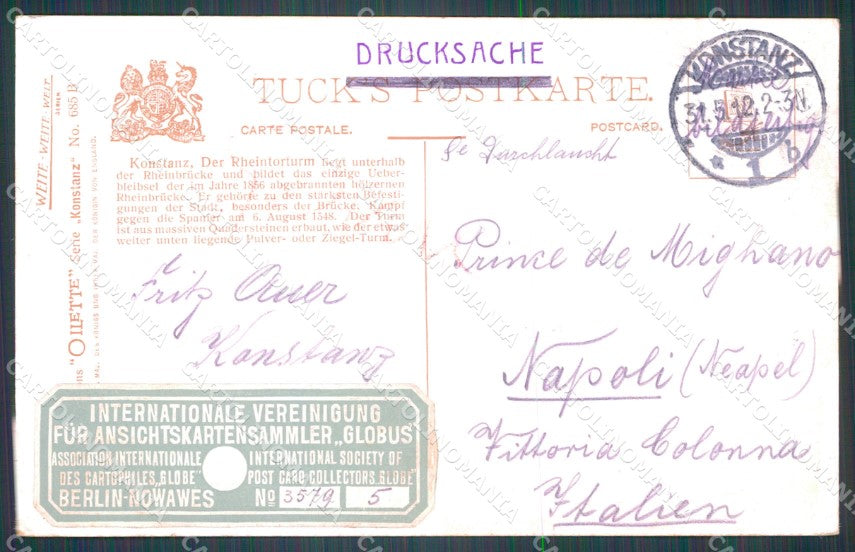 DRUCKSACHE
TUCK'S POSTKARTE.
CARTE POSTALE.
POSTCARD.
WEITE-WEITE-WELT
SERIEN
"OILETTE" Serie „Konstanz" No. 685 B
Konstanz, Der Rheintorturm liegt unterhalb
der Rheinbrücke und bildet das einzige Ueber-
bleibsel der im Jahre 1856 abgebrannten hölzernen
Rheinbrücke. Er gehörte zu den stärksten Befesti-
gungen der Stadt, besonders der Brücke. Kampf
gegen die Spanier am 6. August 1548. Der Turm
ist aus massiven Quadersteinen erbaut, wie der etwas
weiter unten liegende Pulver- oder Ziegel-Turm.
Fritz Auer
Konstanz
INTERNATIONALE VEREINIGUNG
FÜR ANSICHTSKARTENSAMMLER „GLOBUS"
ASSOCIATION INTERNATIONALE
DES CARTOPHILES „GLOBE"
INTERNATIONAL SOCIETY OF
POST CARD COLLECTORS „GLOBE"
BERLIN-NOWAWES
No 3579 5
KONSTANZ
31.5.12.2-3N.
* 1 b
Se Durchlaucht
Prince de Mighano
Napoli (Neapel)
Vittoria Colonna
Italien
CARTOLINOMANIA